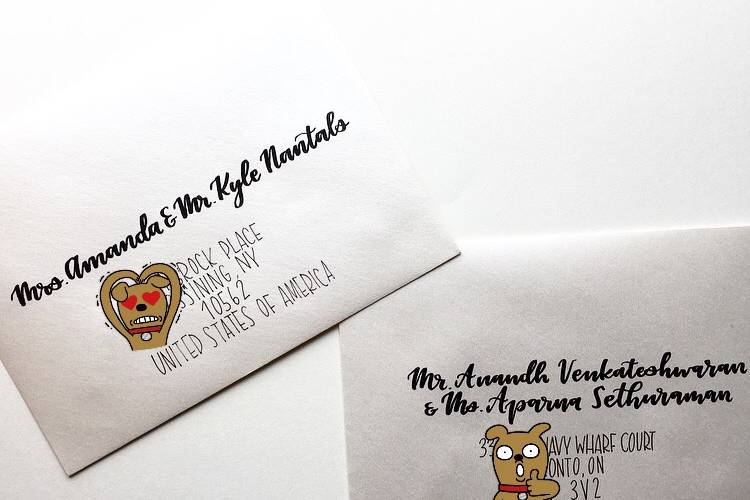 Mrs. Amanda & Mr. Kyle Nantals
ROCK PLACE
SSINING, NY
10562
UNITED STATES OF AMERICA
Mr. Anandh Venkateshwaran
& Ms. Aparna Sethuraman
33 AVY WHARF COURT
ONTO, ON
3V2